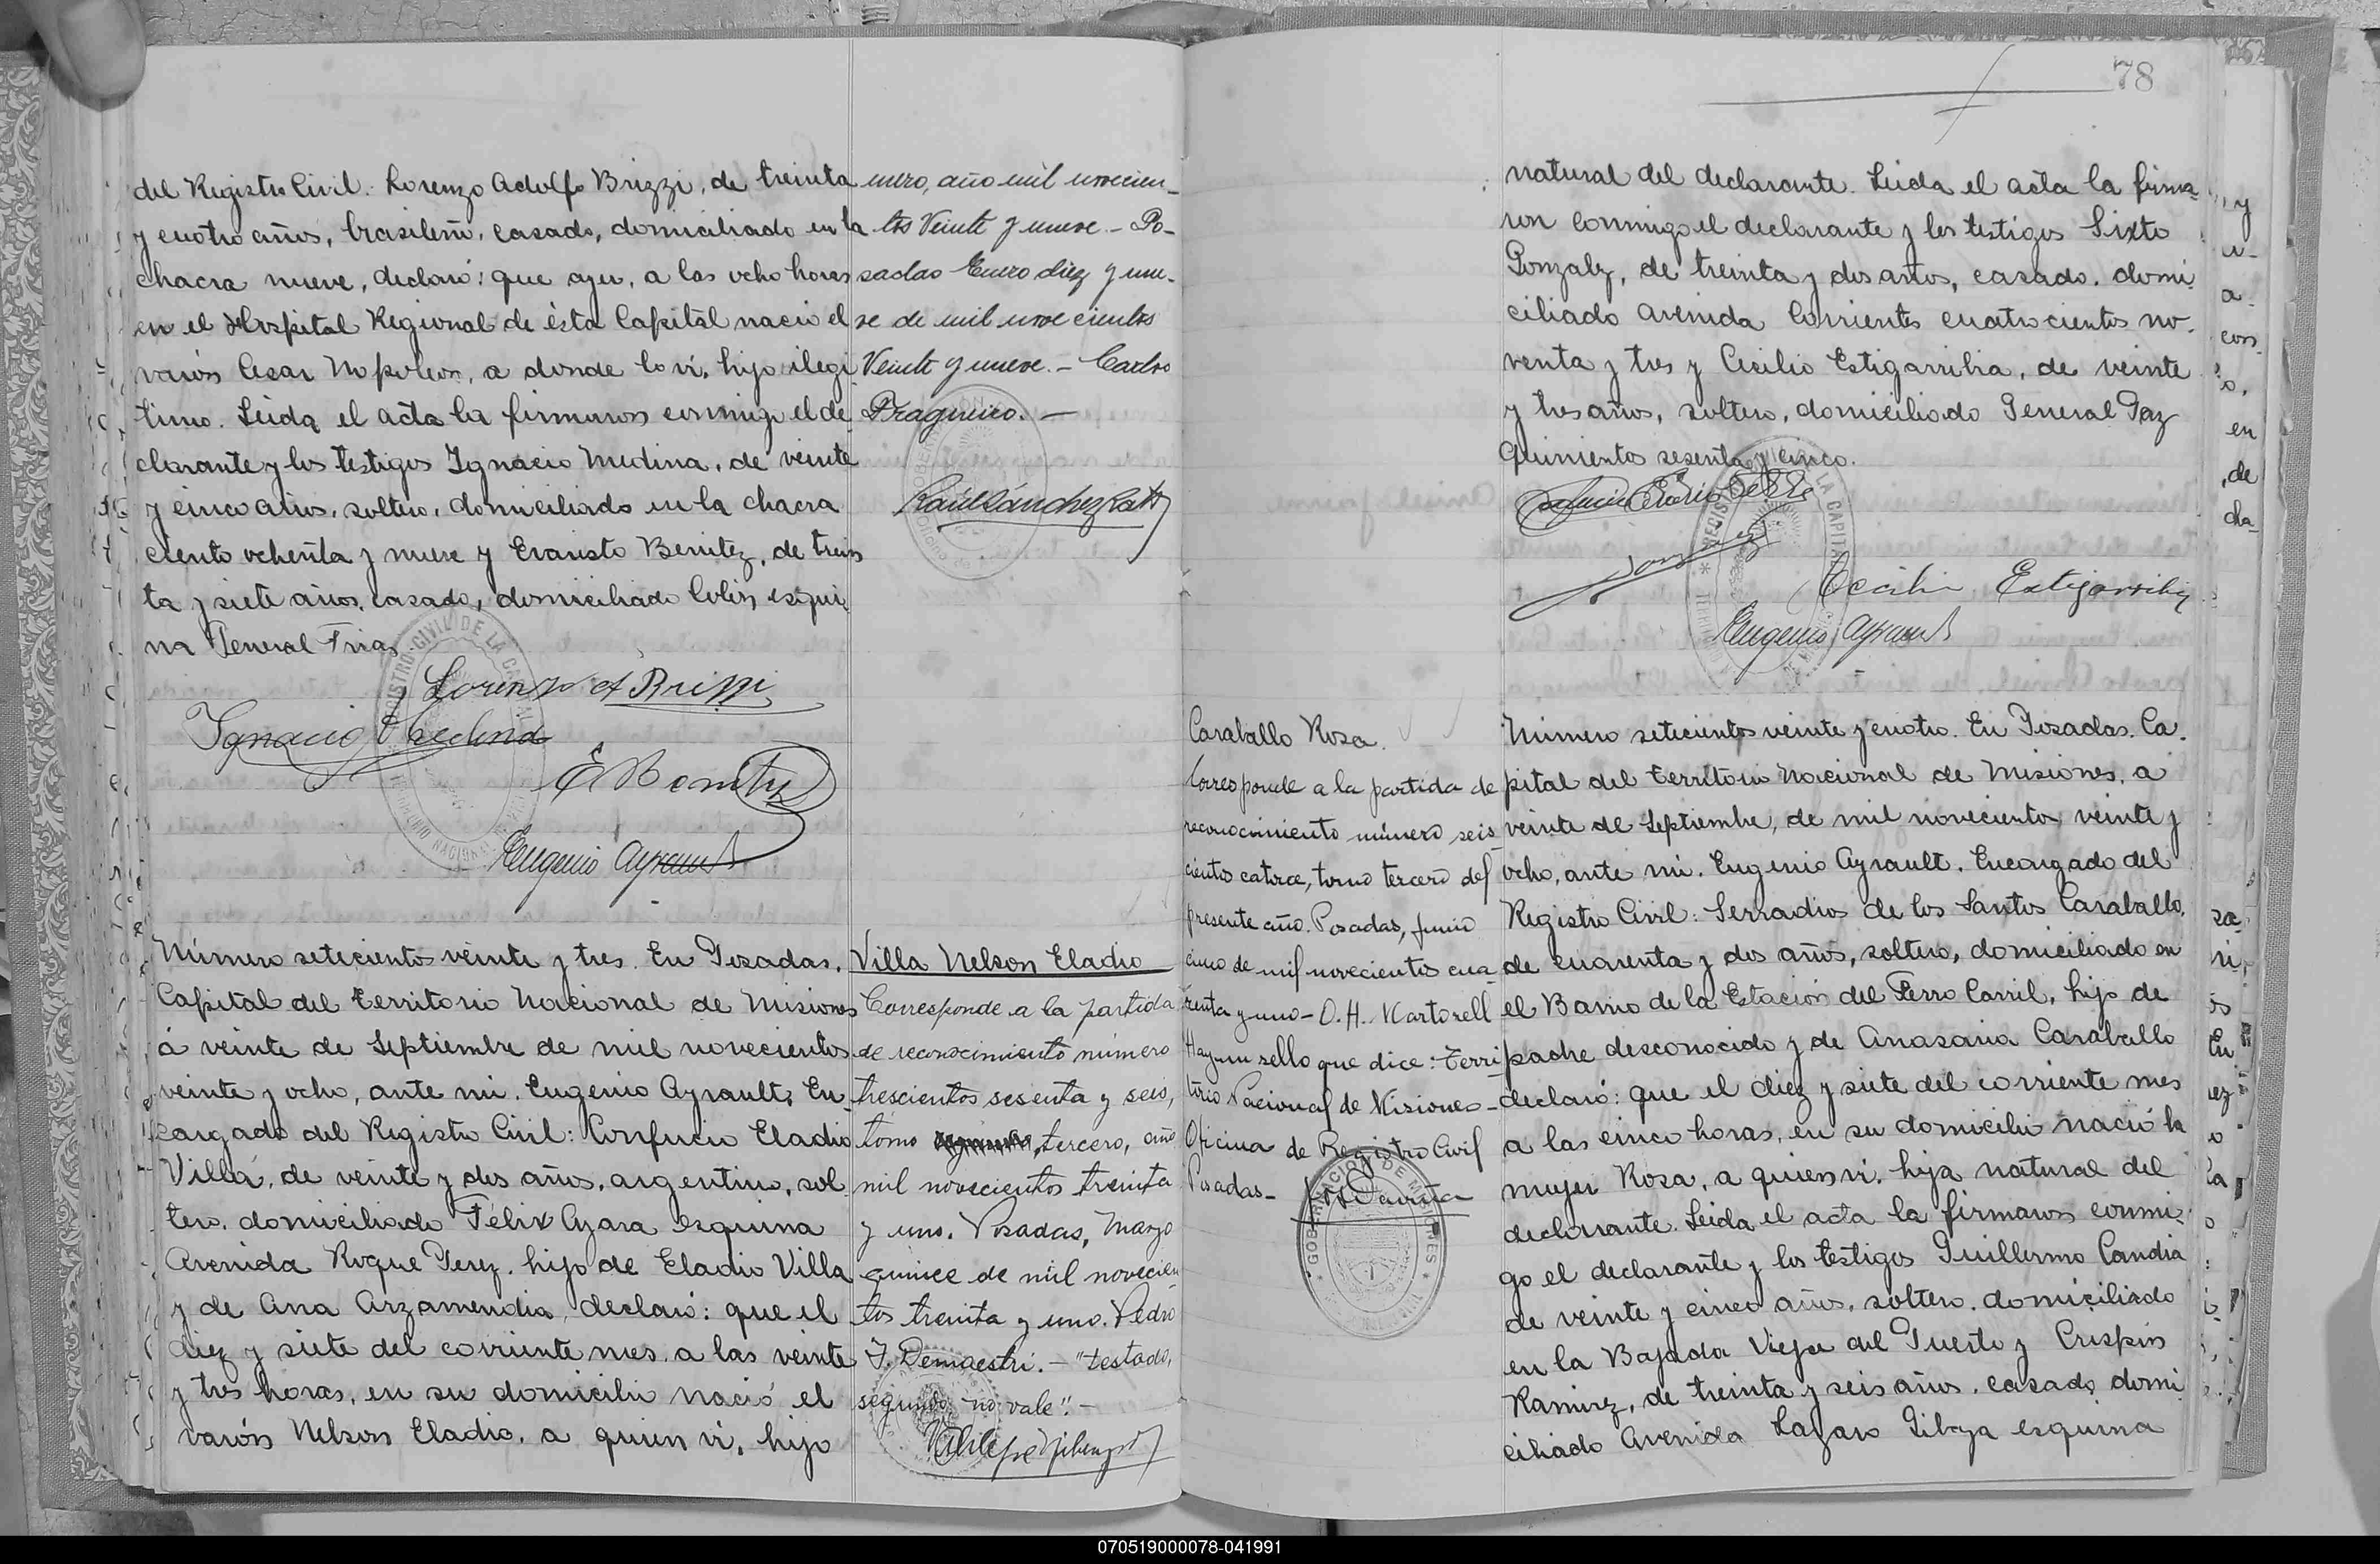 del Registro Civil: Lorenzo Adolfo Brizzi, de treinta
y cuatro años, brasileño, casado, domiciliado en la
chacra nueve, declaró: que ayer, a las ocho horas
en el Hospital Regional de ésta Capital nació el
varón Cesar Napoleon, a donde lo ví, hijo ilegi
timo. Leida el acta la firmaron conmigo el de
clarante y los testigos Ignacio Medina, de veinte
y cinco años, soltero, domiciliado en la chacra
ciento ochenta y nueve y Evaristo Benitez, de trein
ta y siete años, casado, domiciliado Colón esqui
na General Frias
Lorenzo A Brizzi
Ignacio Medina
E Benitez
Eugenio Ayrault
Número setecientos veinte y tres. En Posadas,
Capital del Territorio Nacional de Misiones
á veinte de Septiembre de mil novecientos
veinte y ocho, ante mi, Eugenio Ayrault, En
cargado del Registro Civil: Confucio Eladio
Villa, de veinte y dos años, argentino, sol
tero, domiciliado Félix Azara esquina
Avenida Roque Perez, hijo de Eladio Villa
y de Ana Arzamendia, declaró: que el
diez y siete del corriente mes, a las veinte
y tres horas, en su domicilio nació el
varón Nelson Eladio, a quien ví, hijo
nuero, año mil novecien-
tos Veinte y nueve.- Po-
sadas Enero diez y nue-
ve de mil novecientos
Veinte y nueve.- Carlos
Raúl Sánchez Ratti
Villa Nelson Eladio
Corresponde a la partida
de reconocimiento número
trescientos sesenta y seis,
tomo tercero, año
mil novecientos treinta
y uno. Posadas, Marzo
quince de mil novecien
tos treinta y uno. Pedro
J. Demaestri.- "testado,
segundo, no vale".-
78
natural del declarante. Leida el acta la firma-
ron conmigo el declarante y los testigos Sixto
Gonzalez, de treinta y dos años, casado, domi
ciliado Avenida Corrientes cuatrocientos no-
venta y tres y Cecilio Estigarribia, de veinte
y tres años, soltero, domiciliado General Paz
quinientos sesenta y cinco.
Cecilio Estigarribia
Eugenio Ayrault
Caraballo Rosa.
Corresponde a la partida de
reconocimiento número seis
cientos catorce, tomo tercero del
presente año. Posadas, junio
cinco de mil novecientos cua
renta y uno- O.H. Martorell
Hay un sello que dice: Terri
torio Nacional de Misiones-
Oficina de Registro Civil
Posadas-
GOBERNACION DE MISIONES
Número setecientos veinte y cuatro. En Posadas, Ca-
pital del Territorio Nacional de Misiones, a
veinte de Septiembre, de mil novecientos veinte y
ocho, ante mi, Eugenio Ayrault, Encargado del
Registro Civil: Serradios de los Santos Caraballo,
de cuarenta y dos años, soltero, domiciliado en
el Barrio de la Estación del Ferro Carril, hijo de
padre desconocido y de Anasaria Caraballo
declaró: que el diez y siete del corriente mes
a las cinco horas, en su domicilio nació la
mujer Rosa, a quien ví, hija natural del
declarante. Leida el acta la firmaron conmi-
go el declarante y los testigos Guillermo Candia
de veinte y cinco años, soltero, domiciliado
en la Bajada Vieja del Puerto y Crispin
Ramirez, de treinta y seis años, casado, domi
ciliado Avenida Lazaro Gibaja esquina
070519000078-041991